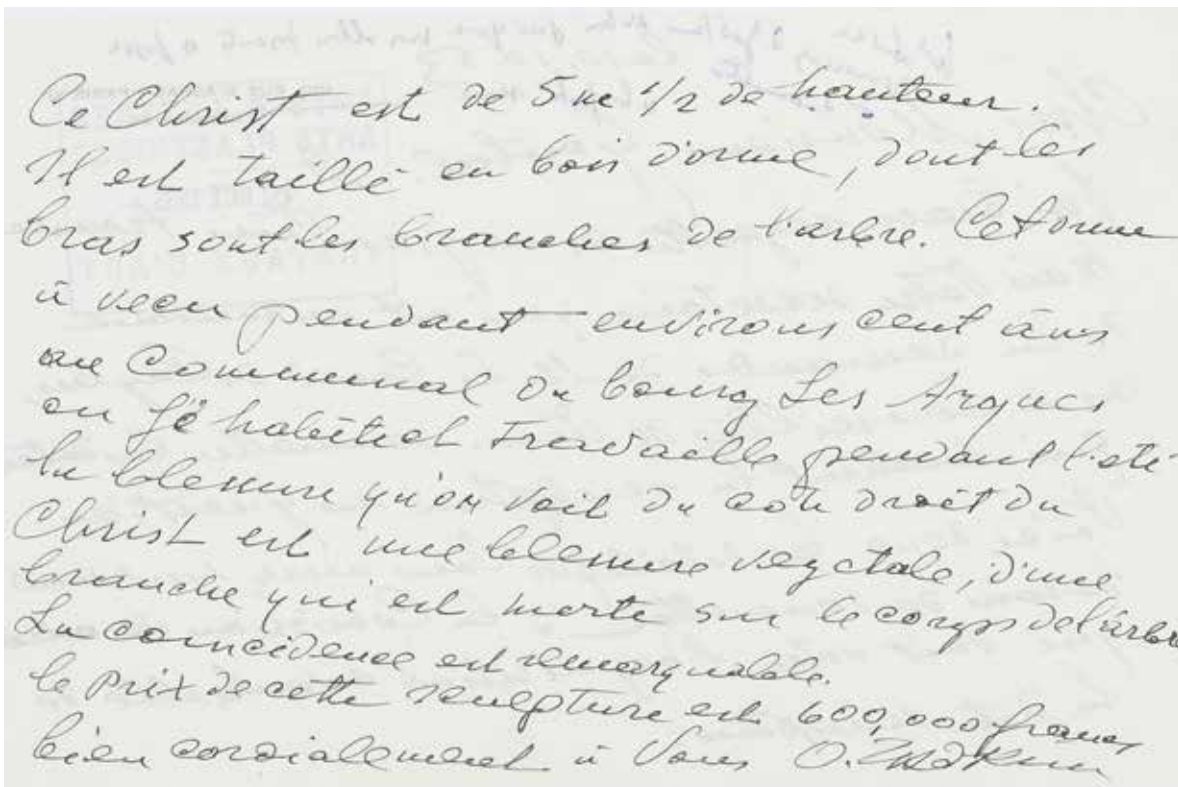 Ce Christ est de 5 m 1/2 de hauteur.
Il est taillé en bois d'orme, dont les
bras sont les branches de l'arbre. Cet orme
à vecu pendant environs cent ans
au Communal du bourg Les Arques
ou j'é habité et travaillé pendant l'eté
la blessure qu'on voit du coté droit du
Christ est une blessure vegetale, d'une
branche qui est morte sur le corps de l'arbre
La coincidence est remarquable.
le prix de cette sculpture est 600,000 francs
bien cordialement à Vous O. Zadkine